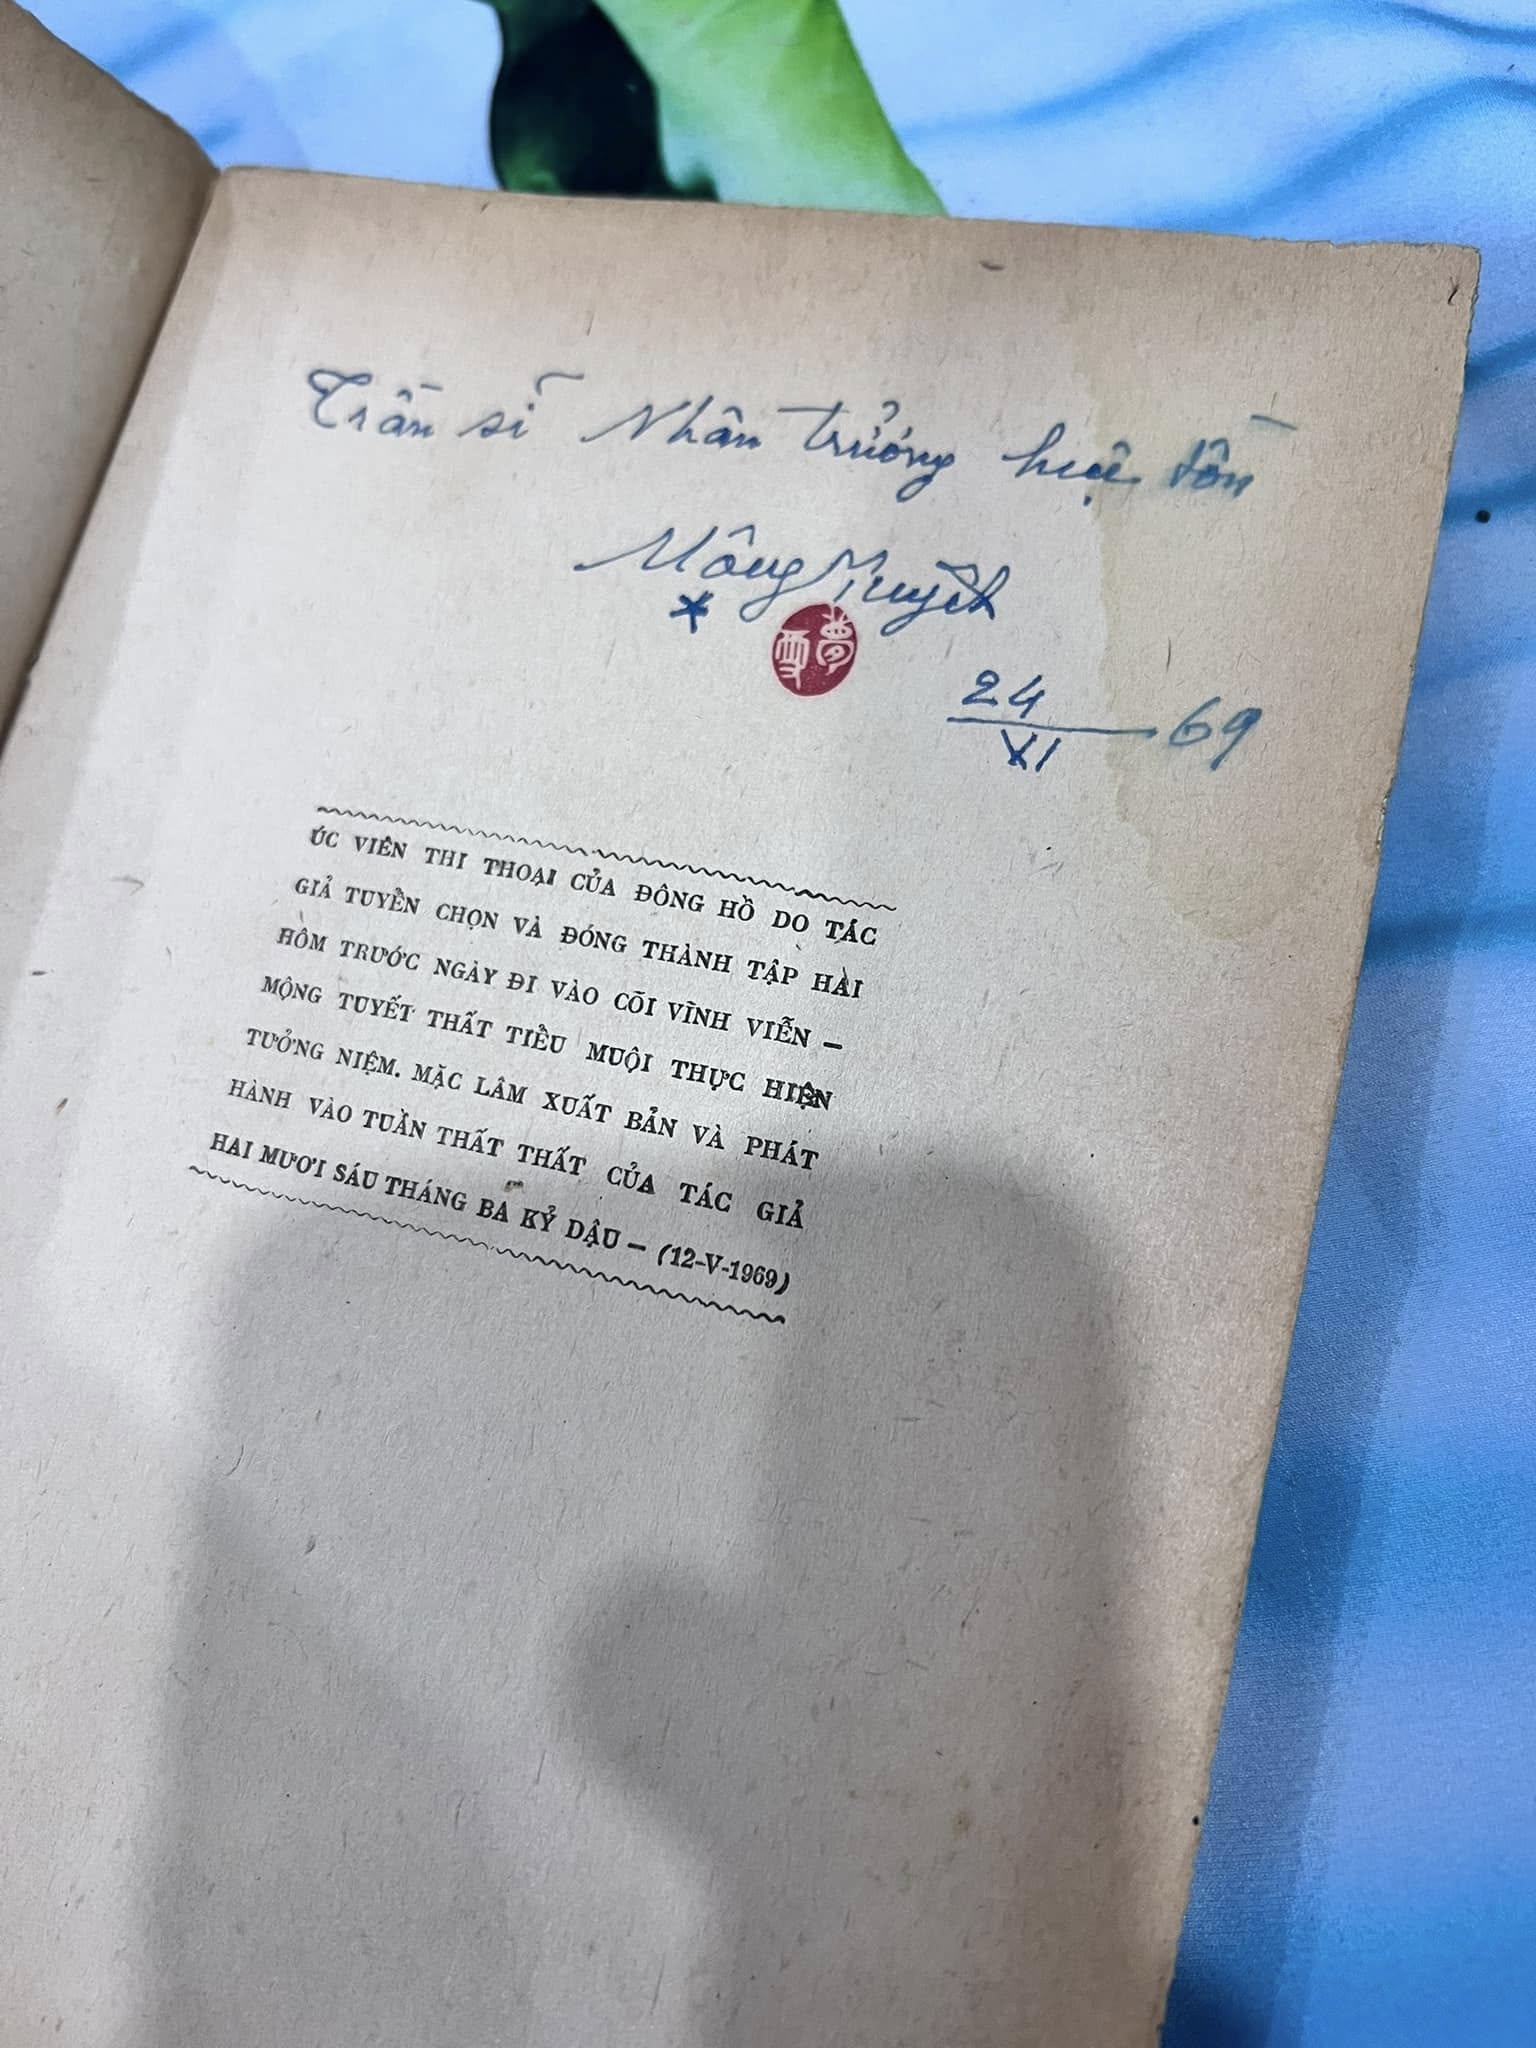 Trần sĩ Nhân trưởng huệ tồn
Mộng Tuyết
夢雪
24
XI
69
ÚC VIÊN THI THOẠI CỦA ĐÔNG HỒ DO TÁC
GIẢ TUYỂN CHỌN VÀ ĐÓNG THÀNH TẬP HAI
HÔM TRƯỚC NGÀY ĐI VÀO CÕI VĨNH VIỄN –
MỘNG TUYẾT THẤT TIỂU MUỘI THỰC HIỆN
TƯỞNG NIỆM. MẶC LÂM XUẤT BẢN VÀ PHÁT
HÀNH VÀO TUẦN THẤT THẤT CỦA TÁC GIẢ
HAI MƯƠI SÁU THÁNG BA KỶ DẬU – (12-V-1969)